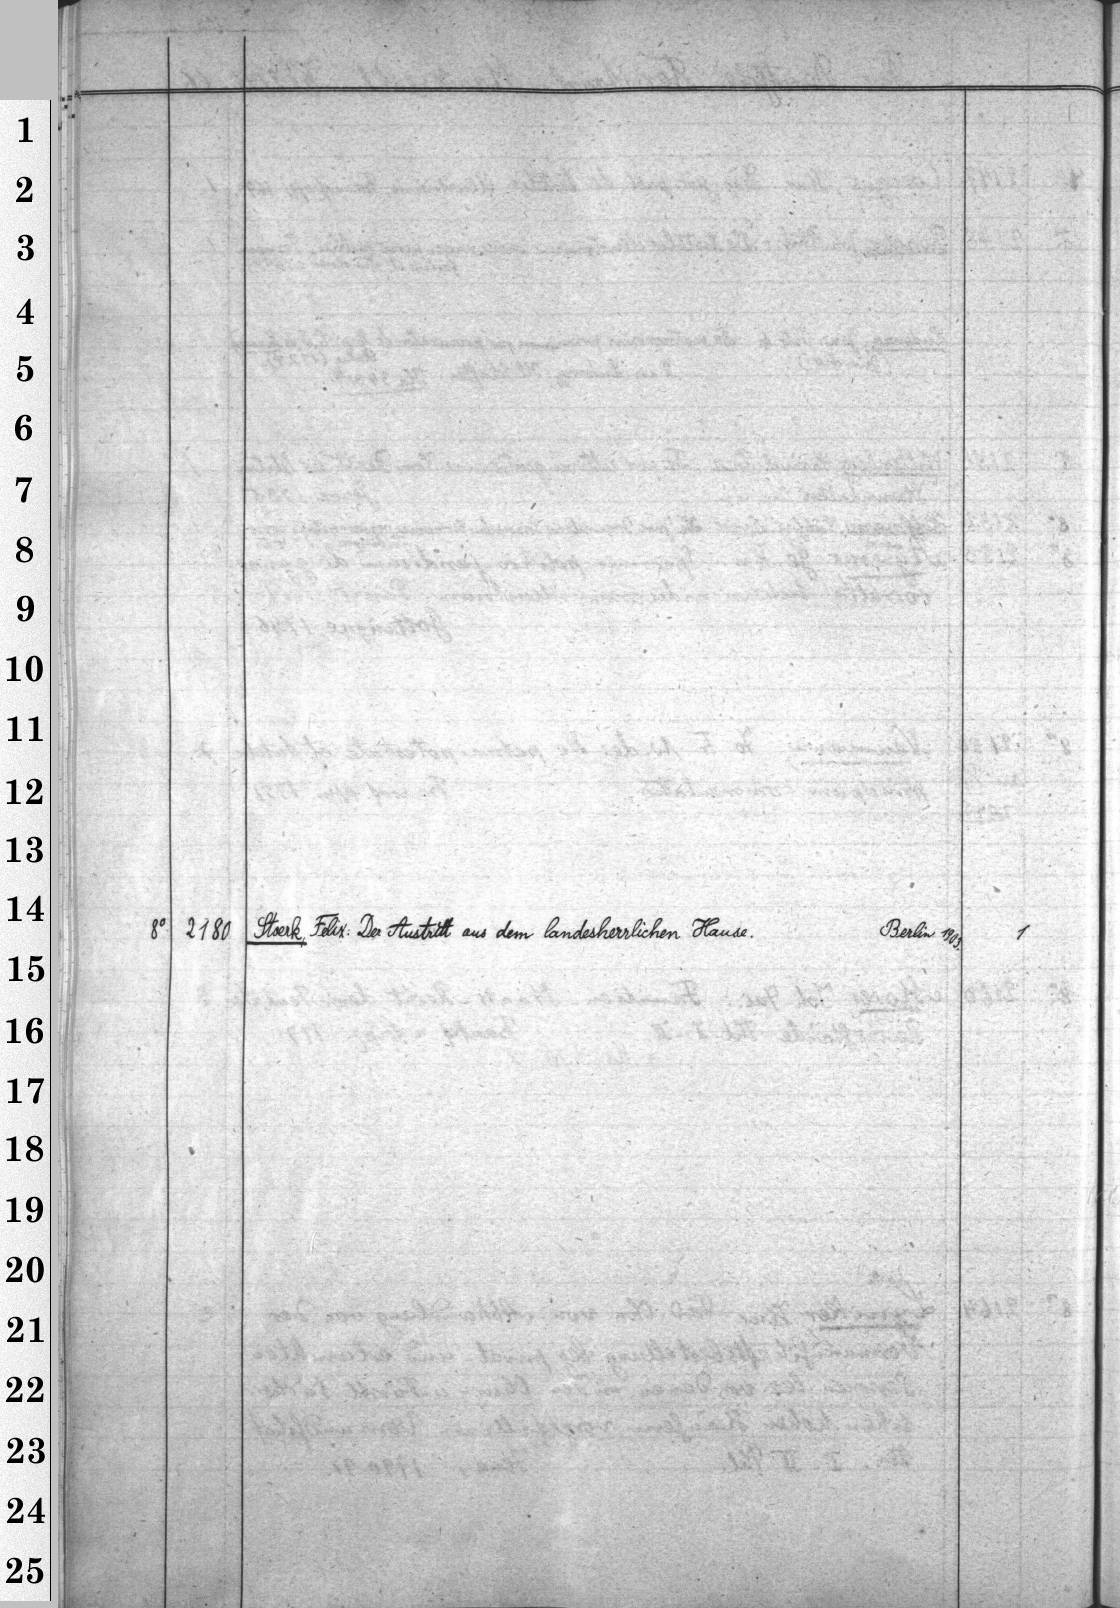 1
2
3
4
5
6
7
8
9
10
11
12
13
14
8° 2180 Stoerk, Felix: Der Austritt aus dem landesherrlichen Hause. Berlin 1903. 1
15
16
17
18
19
20
21
22
23
24
25